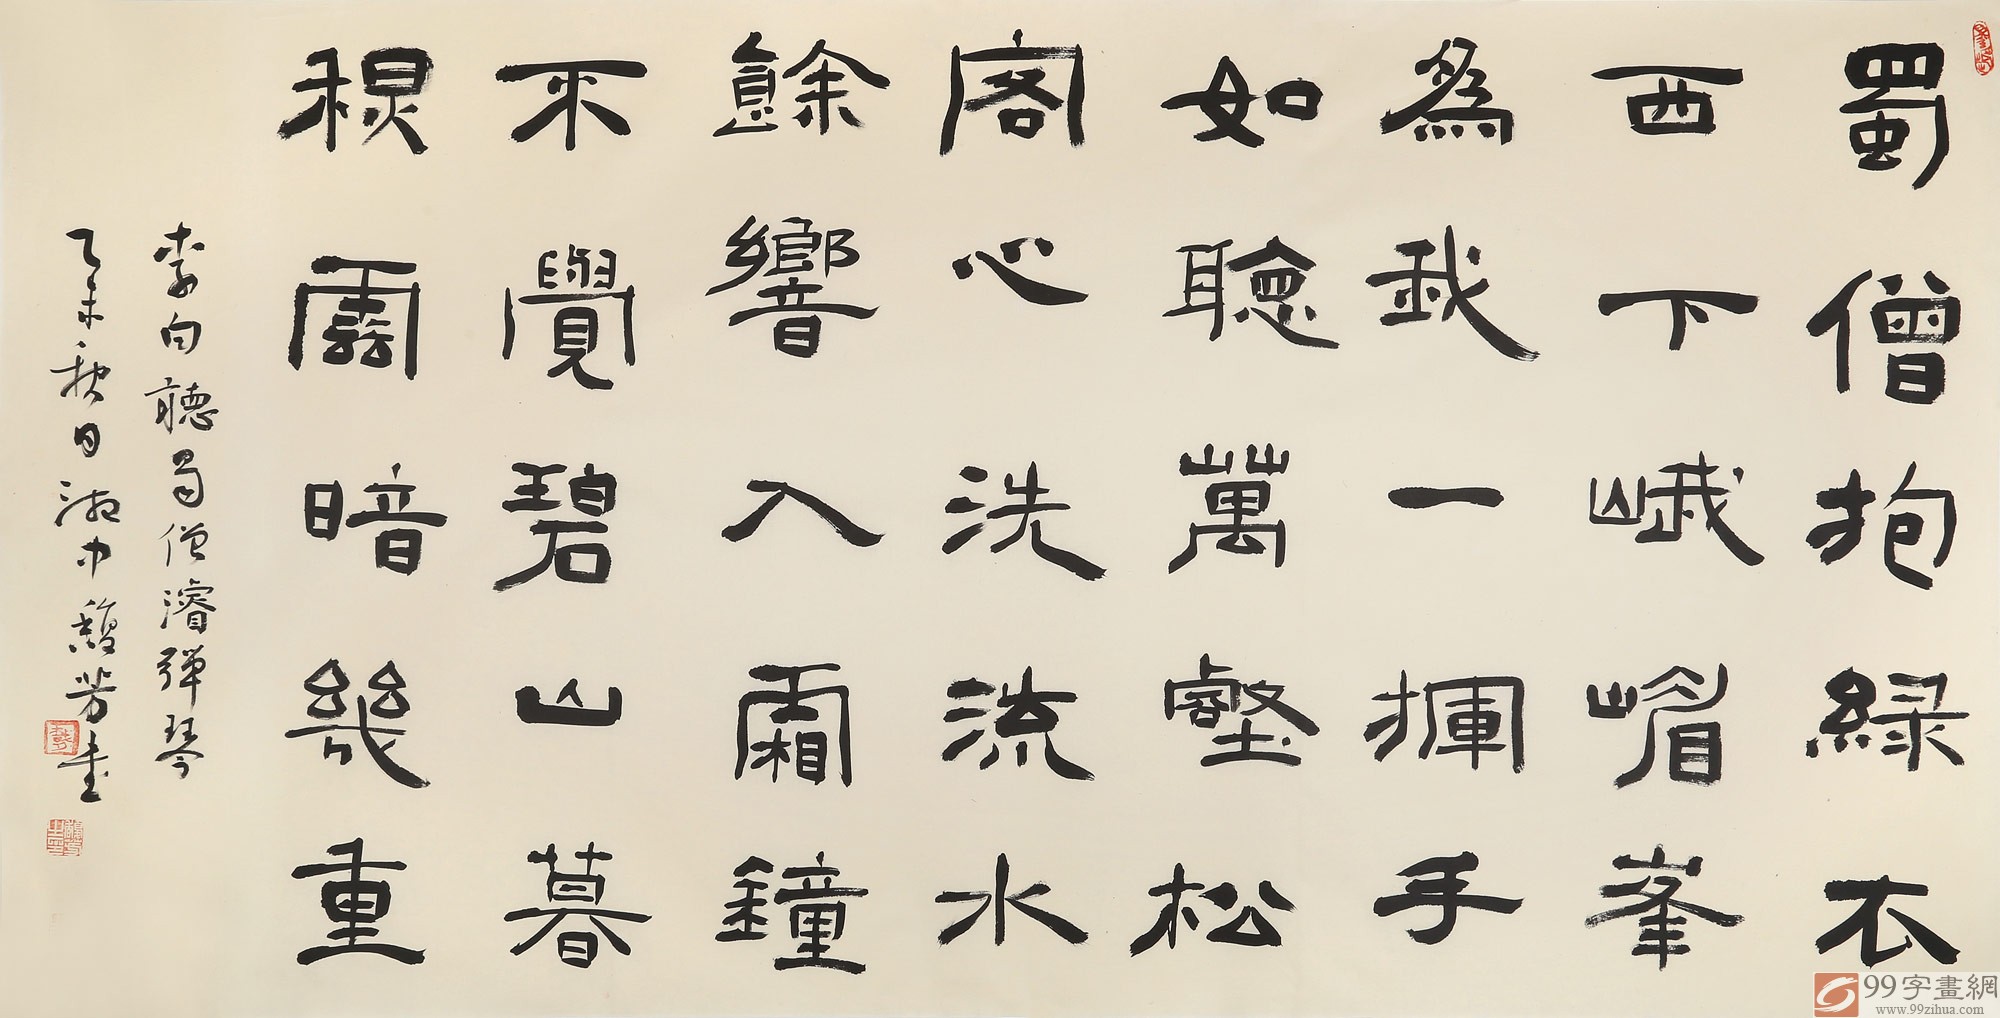 蜀僧抱緑衣
西下峨嵋峯
為我一揮手
如聽萬壑松
客心洗流水
餘響入霜鐘
不覺碧山暮
秋雲暗幾重
李白聽蜀僧濬彈琴
乙未秋日湘中馥芳書
99字畫網
www.99zihua.com